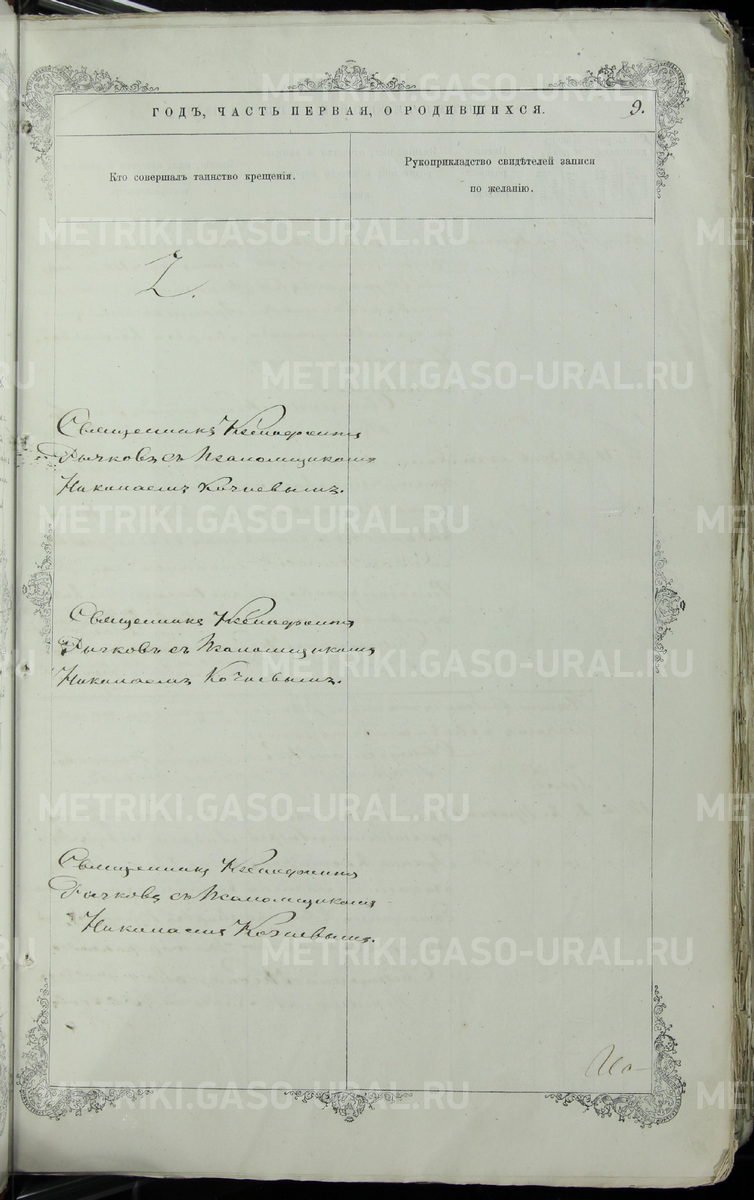 METRIKI.GASO-URAL.RU
ГОДЪ, ЧАСТЬ ПЕРВАЯ, О РОДИВШИХСЯ. 9.
Кто совершалъ таинство крещенія.
Рукоприкладство свидѣтелей записи
по желанію.
Священникъ Ксенофонтъ
Рычковъ съ Псаломщикомъ
Николаемъ Кочневымъ.
Священникъ Ксенофонтъ
Рычковъ съ Псаломщикомъ
Николаемъ Кочневымъ.
Священникъ Ксенофонтъ
Рычковъ съ Псаломщикомъ
Николаемъ Кочневымъ.